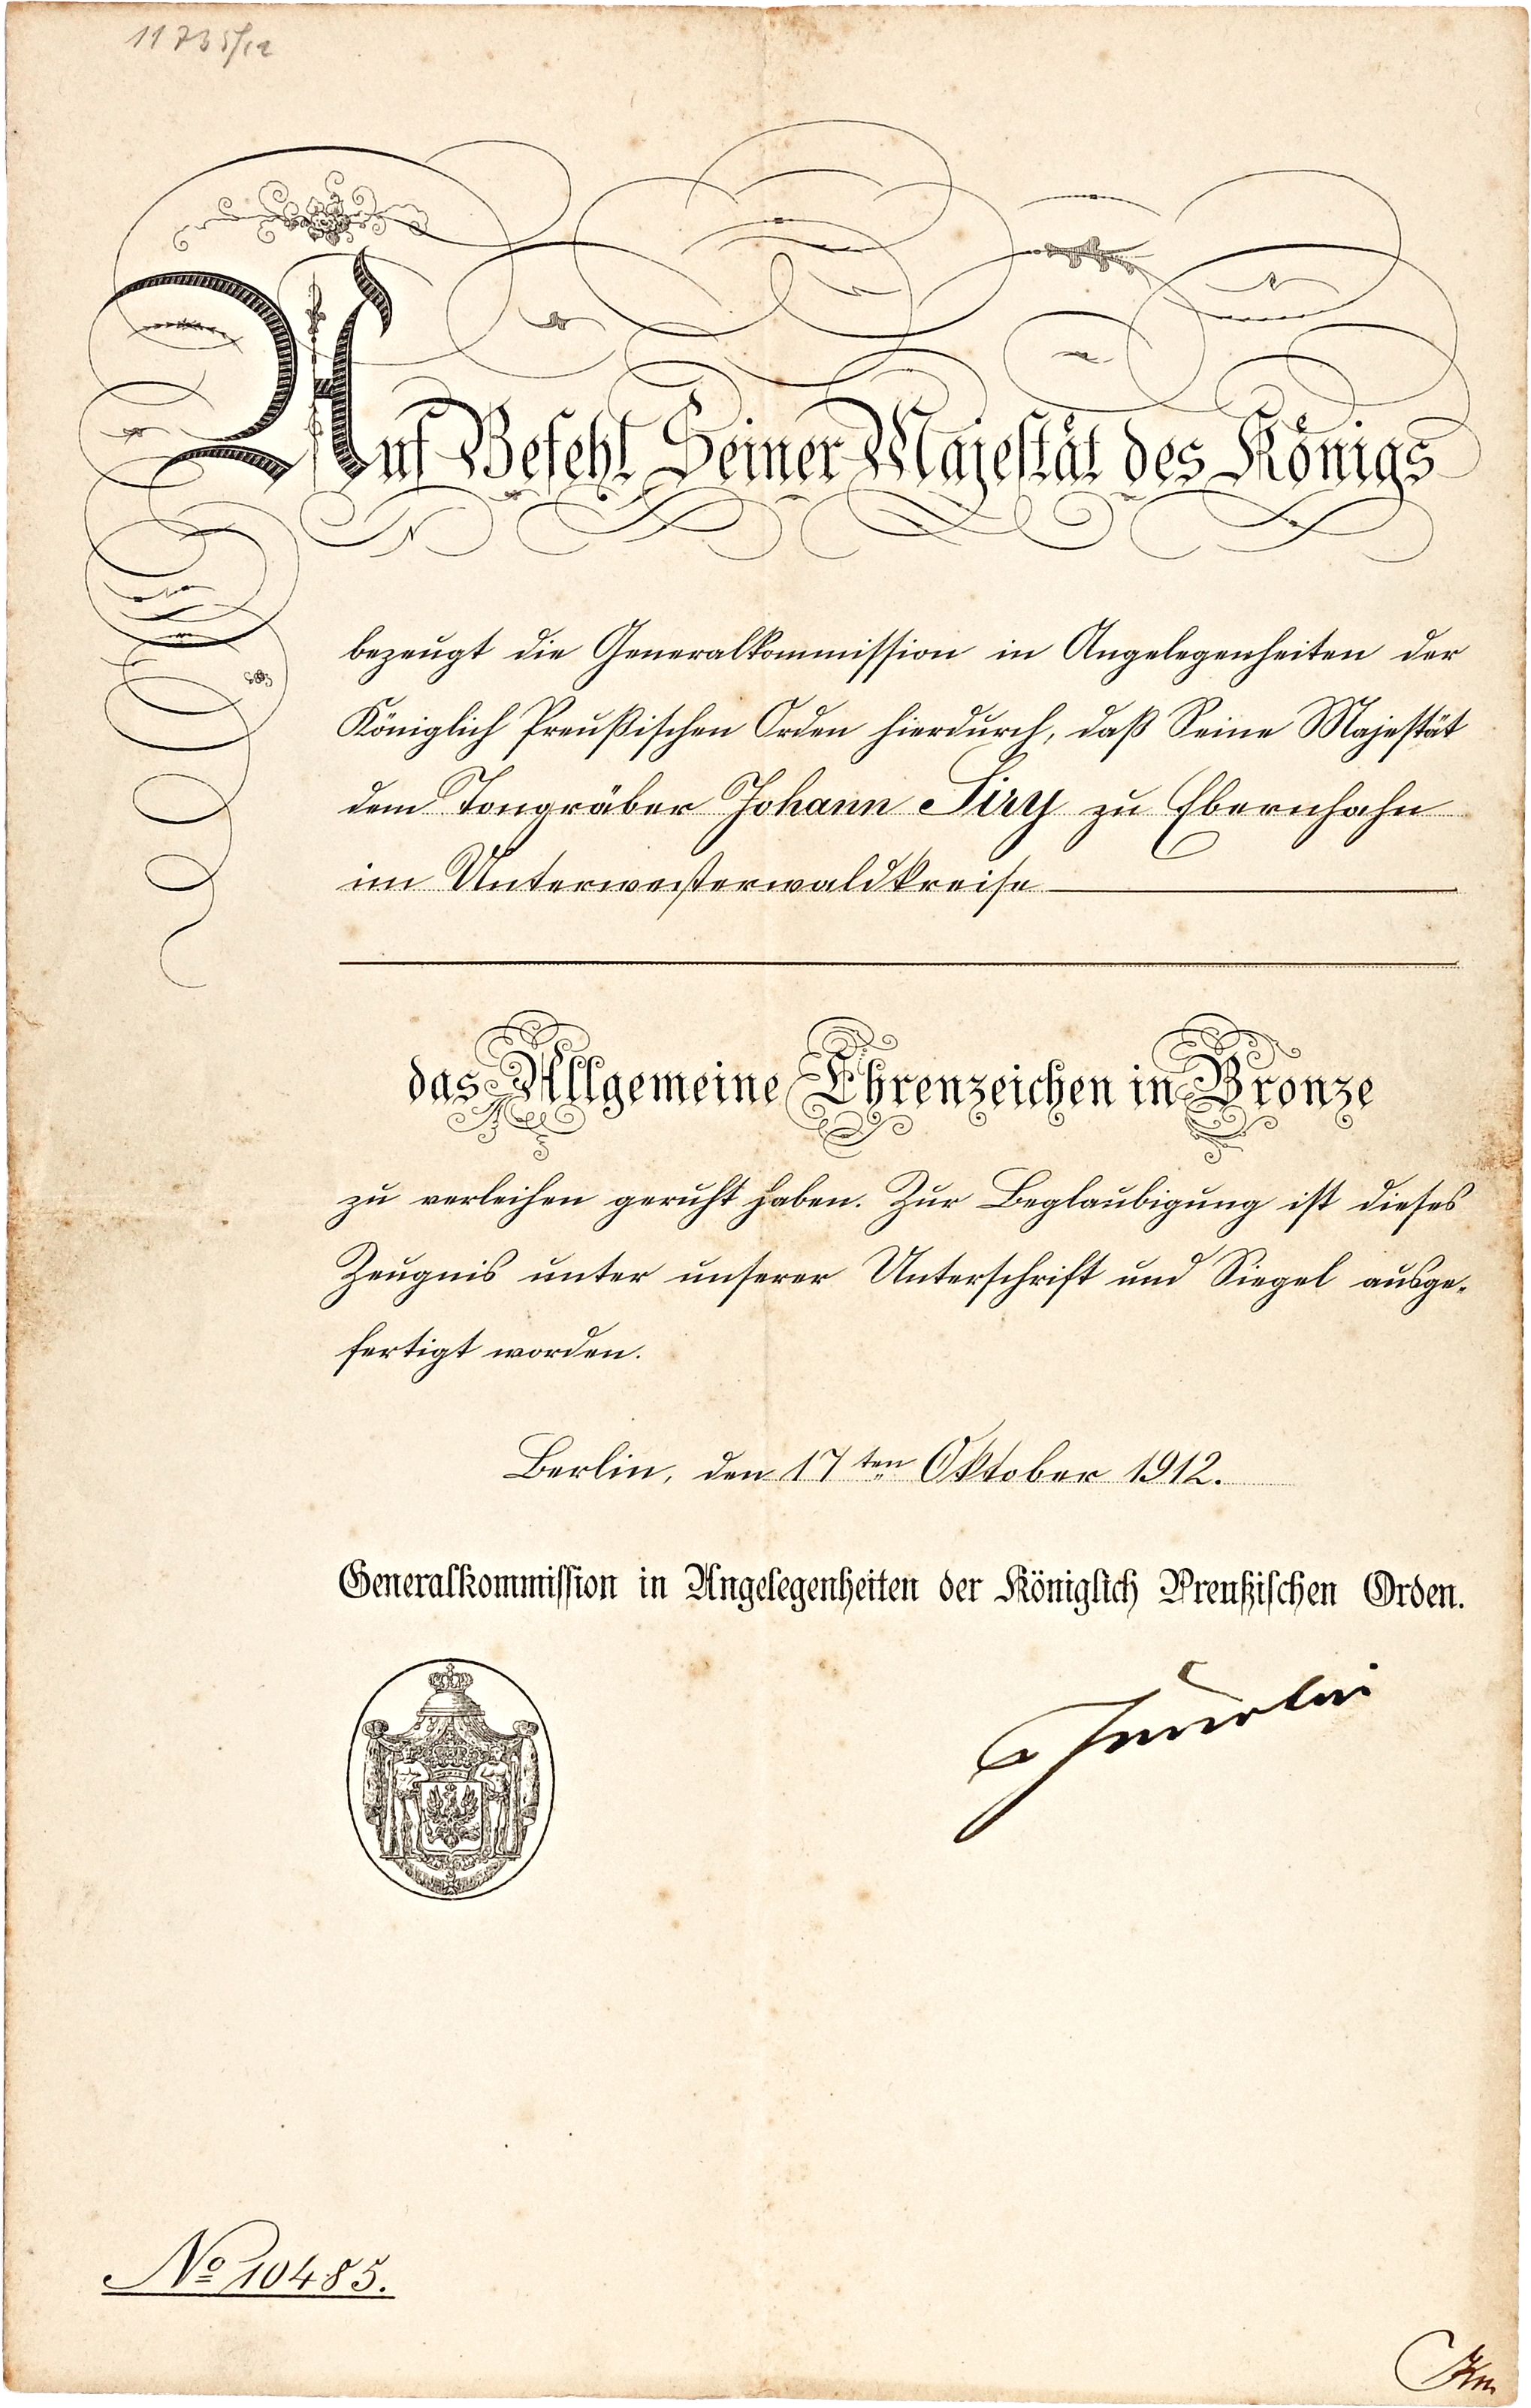 11735/12
Auf Befehl Seiner Majestät des Königs
bezeugt die Generalkommission in Angelegenheiten der
Königlich Preußischen Orden hierdurch, daß Seine Majestät
dem Tongräber Johann Siry zu Ebernhahn
im Unterwesterwaldkreise
das Allgemeine Ehrenzeichen in Bronze
zu verleihen geruht haben. Zur Beglaubigung ist dieses
Zeugnis unter unserer Unterschrift und Siegel ausge-
fertigt worden.
Berlin, den 17ten Oktober 1912.
Generalkommission in Angelegenheiten der Königlich Preußischen Orden.
No 10485.